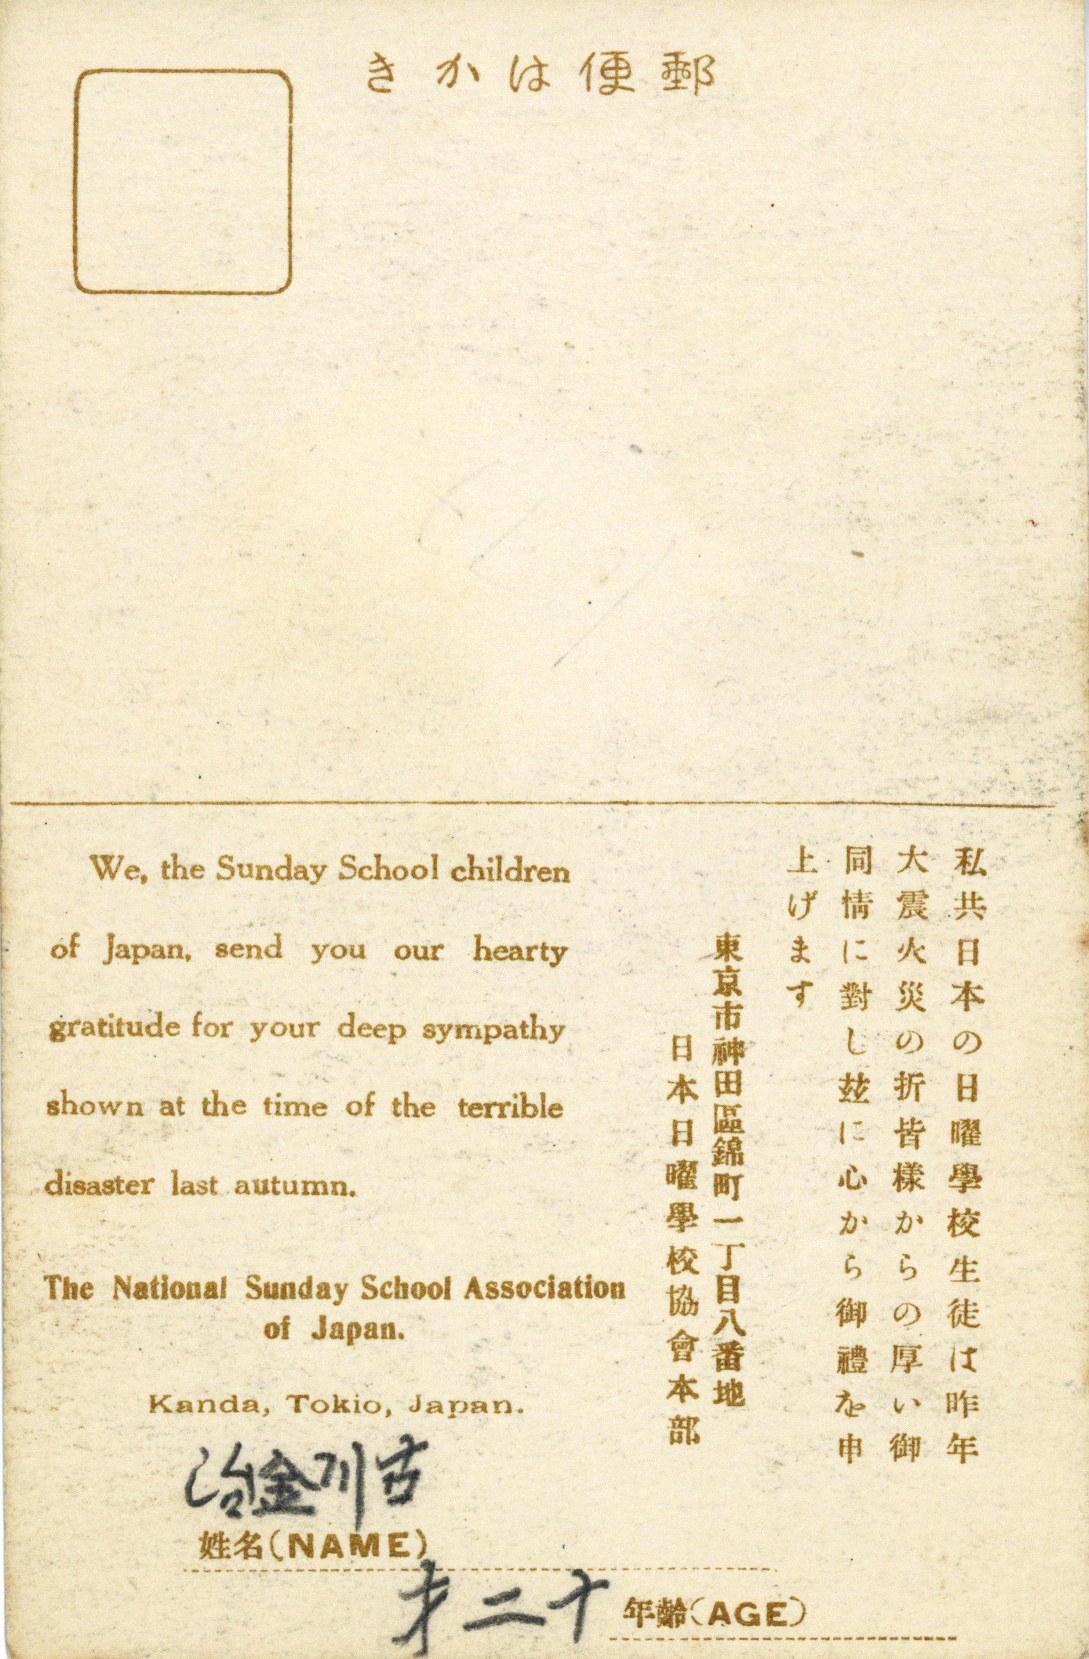 郵便はかき
私共日本の日曜學校生徒は昨年
大震火災の折皆樣からの厚い御
同情に對し玆に心から御禮を申
上げます
東京市神田區錦町一丁目八番地
日本日曜學校協會本部
We, the Sunday School children
of Japan, send you our hearty
gratitude for your deep sympathy
shown at the time of the terrible
disaster last autumn.
The National Sunday School Association
of Japan.
Kanda, Tokio, Japan.
古川金治
姓名(NAME)
年齡(AGE)
十二才